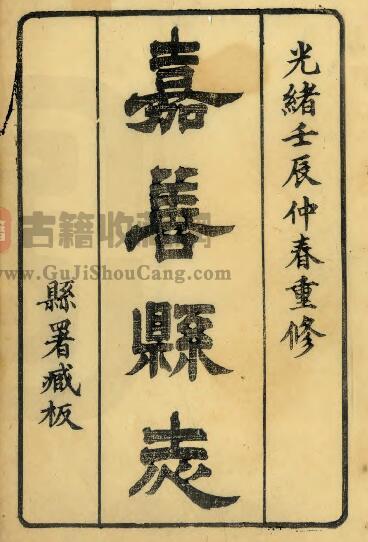 光緒壬辰仲春重修
嘉善縣志
縣署藏板
古籍收藏网
www.GuJiShouCang.com